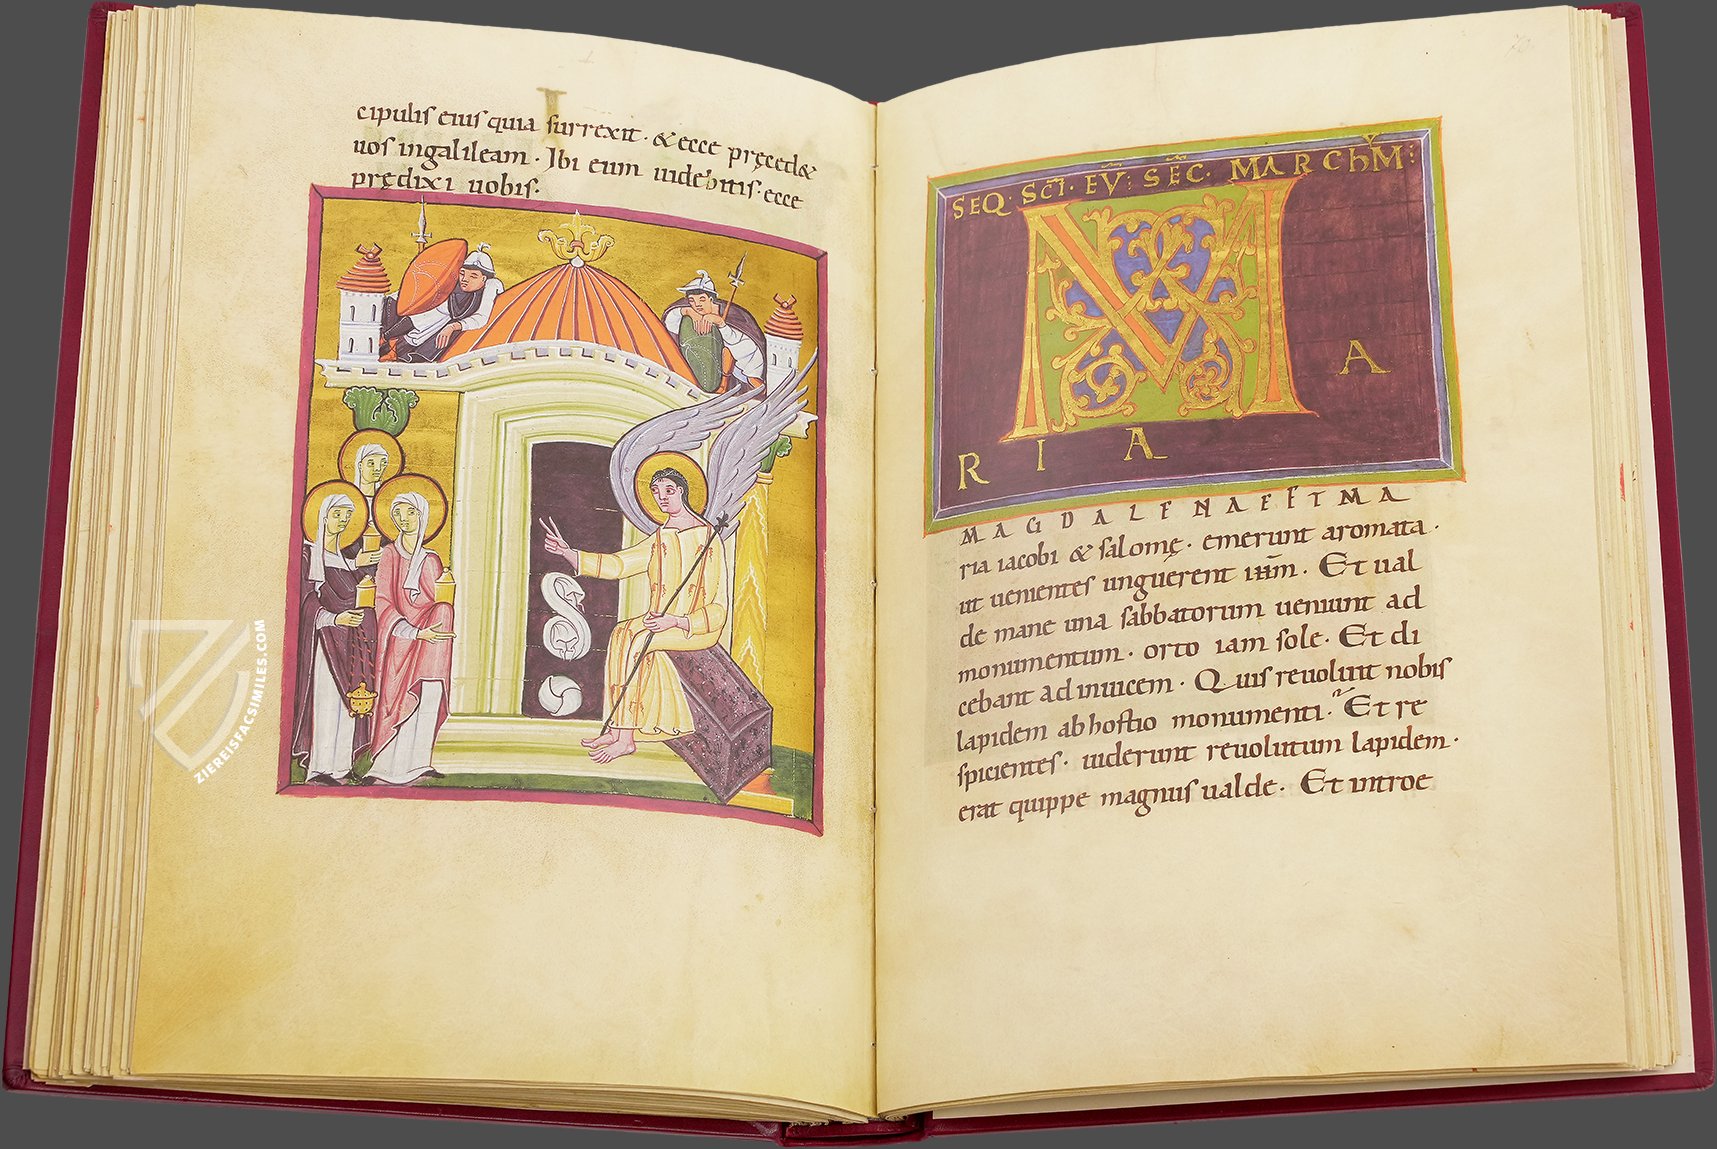 cipulis eius quia surrexit· & ecce pręced&
uos ingalileam· Ibi eum uidebitis· ecce
prędixi uobis·
ZIEREISFACSIMILES.COM
70
SEQ· SC̄I· EV̄: SĒC· MARCHV̄M:
M
A
R I A
MAGDALENA ET MA
ria iacobi & salomę· emerunt aromata·
ut uenientes unguerent ih̄m· Et ual
de mane una sabbatorum ueniunt ad
monumentum· orto iam sole· Et di
cebant adinuicem· Quis reuoluit nobis
lapidem abhostio monumenti? Et re
spicientes· uiderunt reuolutum lapidem·
erat quippe magnus ualde· Et introe